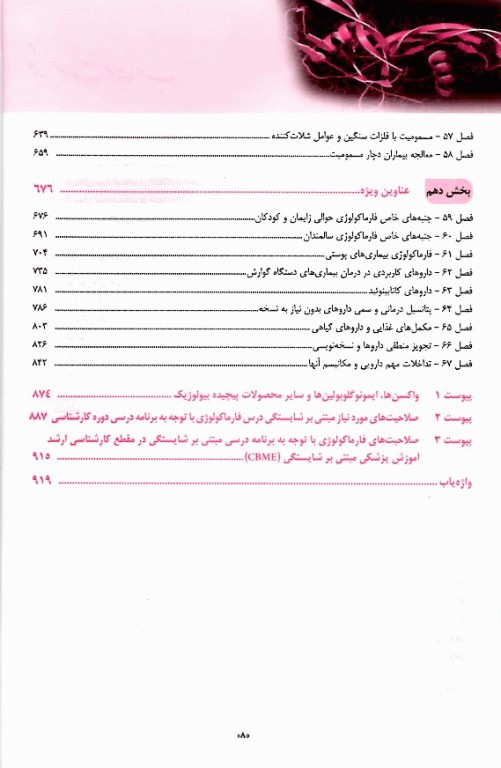 فصل ۵۷ - مسمومیت با فلزات سنگین و عوامل شلات‌کننده ۶۳۹
فصل ۵۸ - معالجه بیماران دچار مسمومیت ۶۵۹
بخش دهم عناوین ویژه ۶۷۶
فصل ۵۹ - جنبه‌های خاص فارماکولوژی حوالی زایمان و کودکان ۶۷۶
فصل ۶۰ - جنبه‌های خاص فارماکولوژی سالمندان ۶۹۱
فصل ۶۱ - فارماکولوژی بیماری‌های پوستی ۷۰۴
فصل ۶۲ - داروهای کاربردی در درمان بیماری‌های دستگاه گوارش ۷۳۵
فصل ۶۳ - داروهای کانابینوئید ۷۸۱
فصل ۶۴ - پتانسیل درمانی و سمی داروهای بدون نیاز به نسخه ۷۸۶
فصل ۶۵ - مکمل‌های غذایی و داروهای گیاهی ۸۰۳
فصل ۶۶ - تجویز منطقی داروها و نسخه‌نویسی ۸۲۶
فصل ۶۷ - تداخلات مهم دارویی و مکانیسم آنها ۸۴۲
پیوست ۱ واکسن‌ها، ایمونوگلوبولین‌ها و سایر محصولات پیچیده بیولوژیک ۸۷۴
پیوست ۲ صلاحیت‌های مورد نیاز مبتنی بر شایستگی درس فارماکولوژی با توجه به برنامه درسی دوره کارشناسی ۸۸۷
پیوست ۳ صلاحیت‌های فارماکولوژی با توجه به برنامه درسی مبتنی بر شایستگی در مقطع کارشناسی ارشد
آموزش پزشکی مبتنی بر شایستگی (CBME) ۹۱۵
واژه‌یاب ۹۱۹
«۸»